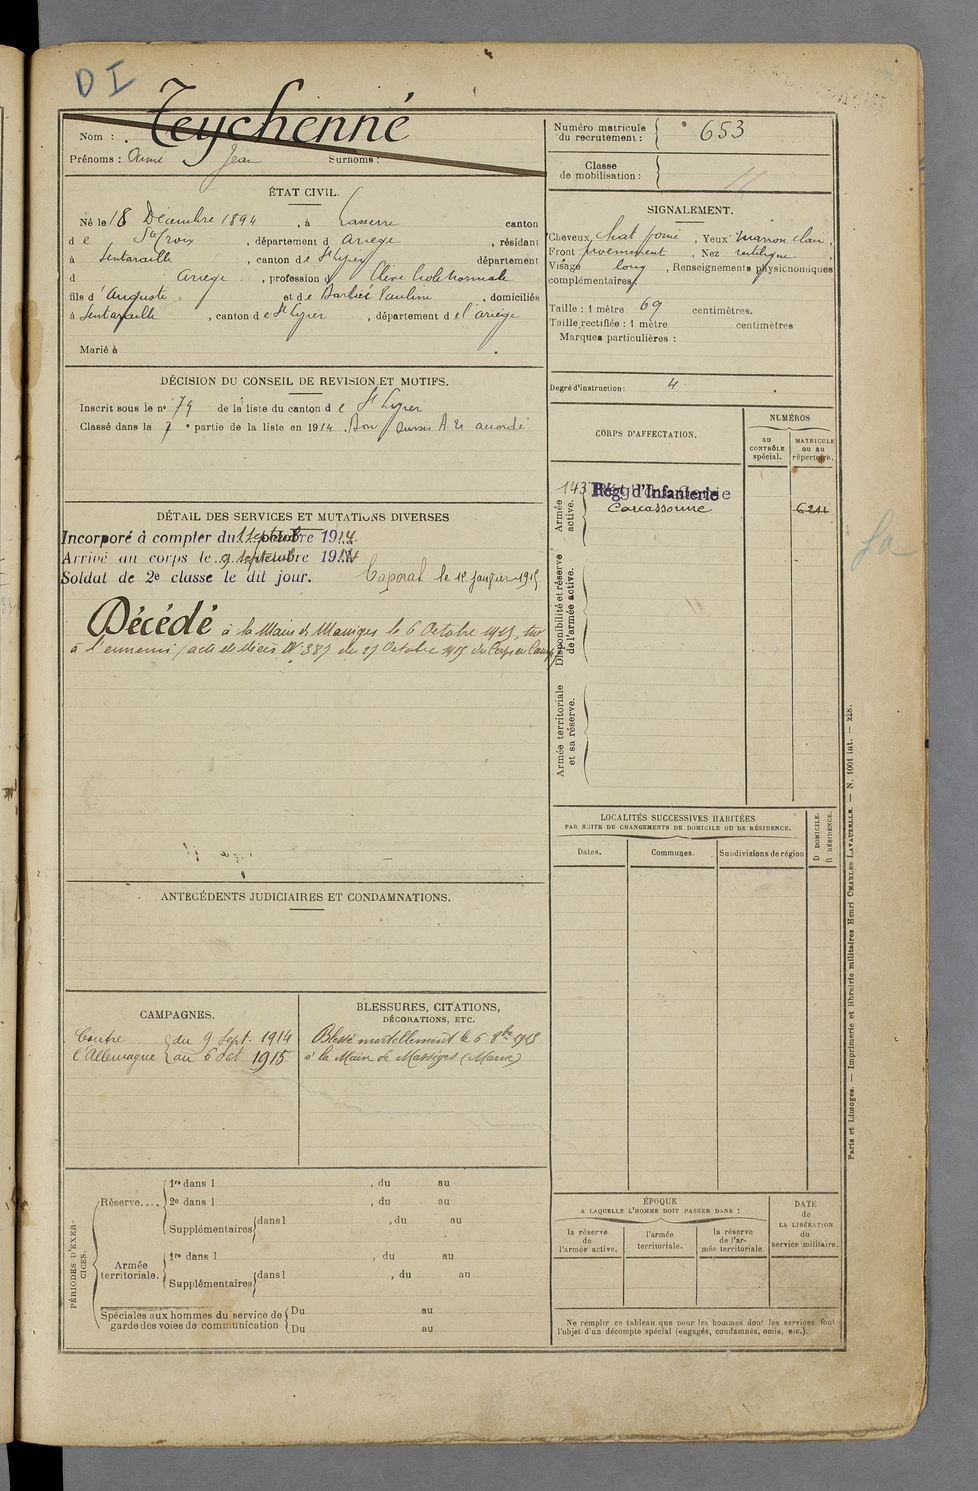 D I
Nom : Teychenné
Prénoms : Aimé Jean Surnoms :
ÉTAT CIVIL.
Né le 18 Décembre 1894, à Lasserre canton
d e Ste Croix, département d Ariège, résidant
à Sentaraille, canton de St Lizier département
d Ariège, profession d Elève Ecole Normale
fils d'Auguste et de Barbié Pauline, domiciliés
à Sentaraille, canton de St Lizier, département d e l'ariège
Marié à
DÉCISION DU CONSEIL DE REVISION ET MOTIFS.
Inscrit sous le n° 74 de la liste du canton d e St Lizier
Classé dans la 7 e partie de la liste en 1914. Bon sursis A 21 accordé
DÉTAIL DES SERVICES ET MUTATIONS DIVERSES
Incorporé à compter du 1 septembre 1914
Arrivé au corps le 9 septembre 1914
Soldat de 2e classe le dit jour. Caporal le 12 janvier 1915
Décédé à la Main de Massiges le 6 Octobre 1915, tué
à l'ennemi (acte de décès N° 387 du 27 Octobre 1915 du Corps en Camp
ANTECÉDENTS JUDICIAIRES ET CONDAMNATIONS.
CAMPAGNES.
Contre du 9 Sept. 1914
l'Allemagne au 6 oct 1915
BLESSURES, CITATIONS,
DÉCORATIONS, ETC.
Blessé mortellement le 6 8bre 1915
à la Main de Massiges (Marne)
PÉRIODES D'EXERCICES.
Réserve....
1re dans l , du au
2e dans l , du au
Supplémentaires dans l , du au
Armée territoriale.
1re dans l , du au
Supplémentaires dans l , du au
Spéciales aux hommes du service de Du au
garde des voies de communication Du au
Numéro matricule du recrutement : 653
Classe de mobilisation :
SIGNALEMENT.
Cheveux chat foncé, Yeux marron clair,
Front proéminent, Nez rectiligne,
Visage long, Renseignements physionomiques
complémentaires
Taille : 1 mètre 69 centimètres.
Taille rectifiée : 1 mètre centimètres
Marques particulières :
Degré d'instruction : 4
CORPS D'AFFECTATION.
NUMÉROS
au CONTRÔLE spécial.
MATRICULE ou au répertoire.
Armée active.
143 Régt d'Infanterie
Carcassonne
6211
Disponibilité et réserve de l'armée active.
Armée territoriale et sa réserve.
LOCALITÉS SUCCESSIVES HABITÉES
PAR SUITE DE CHANGEMENTS DE DOMICILE OU DE RÉSIDENCE.
Dates. Communes. Subdivisions de région
D DOMICILE.
R RÉSIDENCE.
ÉPOQUE
A LAQUELLE L'HOMME DOIT PASSER DANS :
la réserve de l'armée active.
l'armée territoriale.
la réserve de l'armée territoriale.
DATE de LA LIBÉRATION du service militaire.
Ne remplir ce tableau que pour les hommes dont les services font
l'objet d'un décompte spécial (engagés, condamnés, omis, etc.).
Paris et Limoges. — Imprimerie et librairie militaires Henri CHARLES-LAVAUZELLE. — N. 1001 int. — 218.